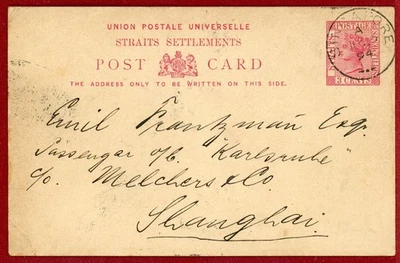 UNION POSTALE UNIVERSELLE
STRAITS SETTLEMENTS
POST CARD
THE ADDRESS ONLY TO BE WRITTEN ON THIS SIDE.
POSTAGE
3 CENTS
Emil Frantzman Esq.
Passengar o/b. "Karlsruhe"
c/o. Melchers & Co.
Shanghai.